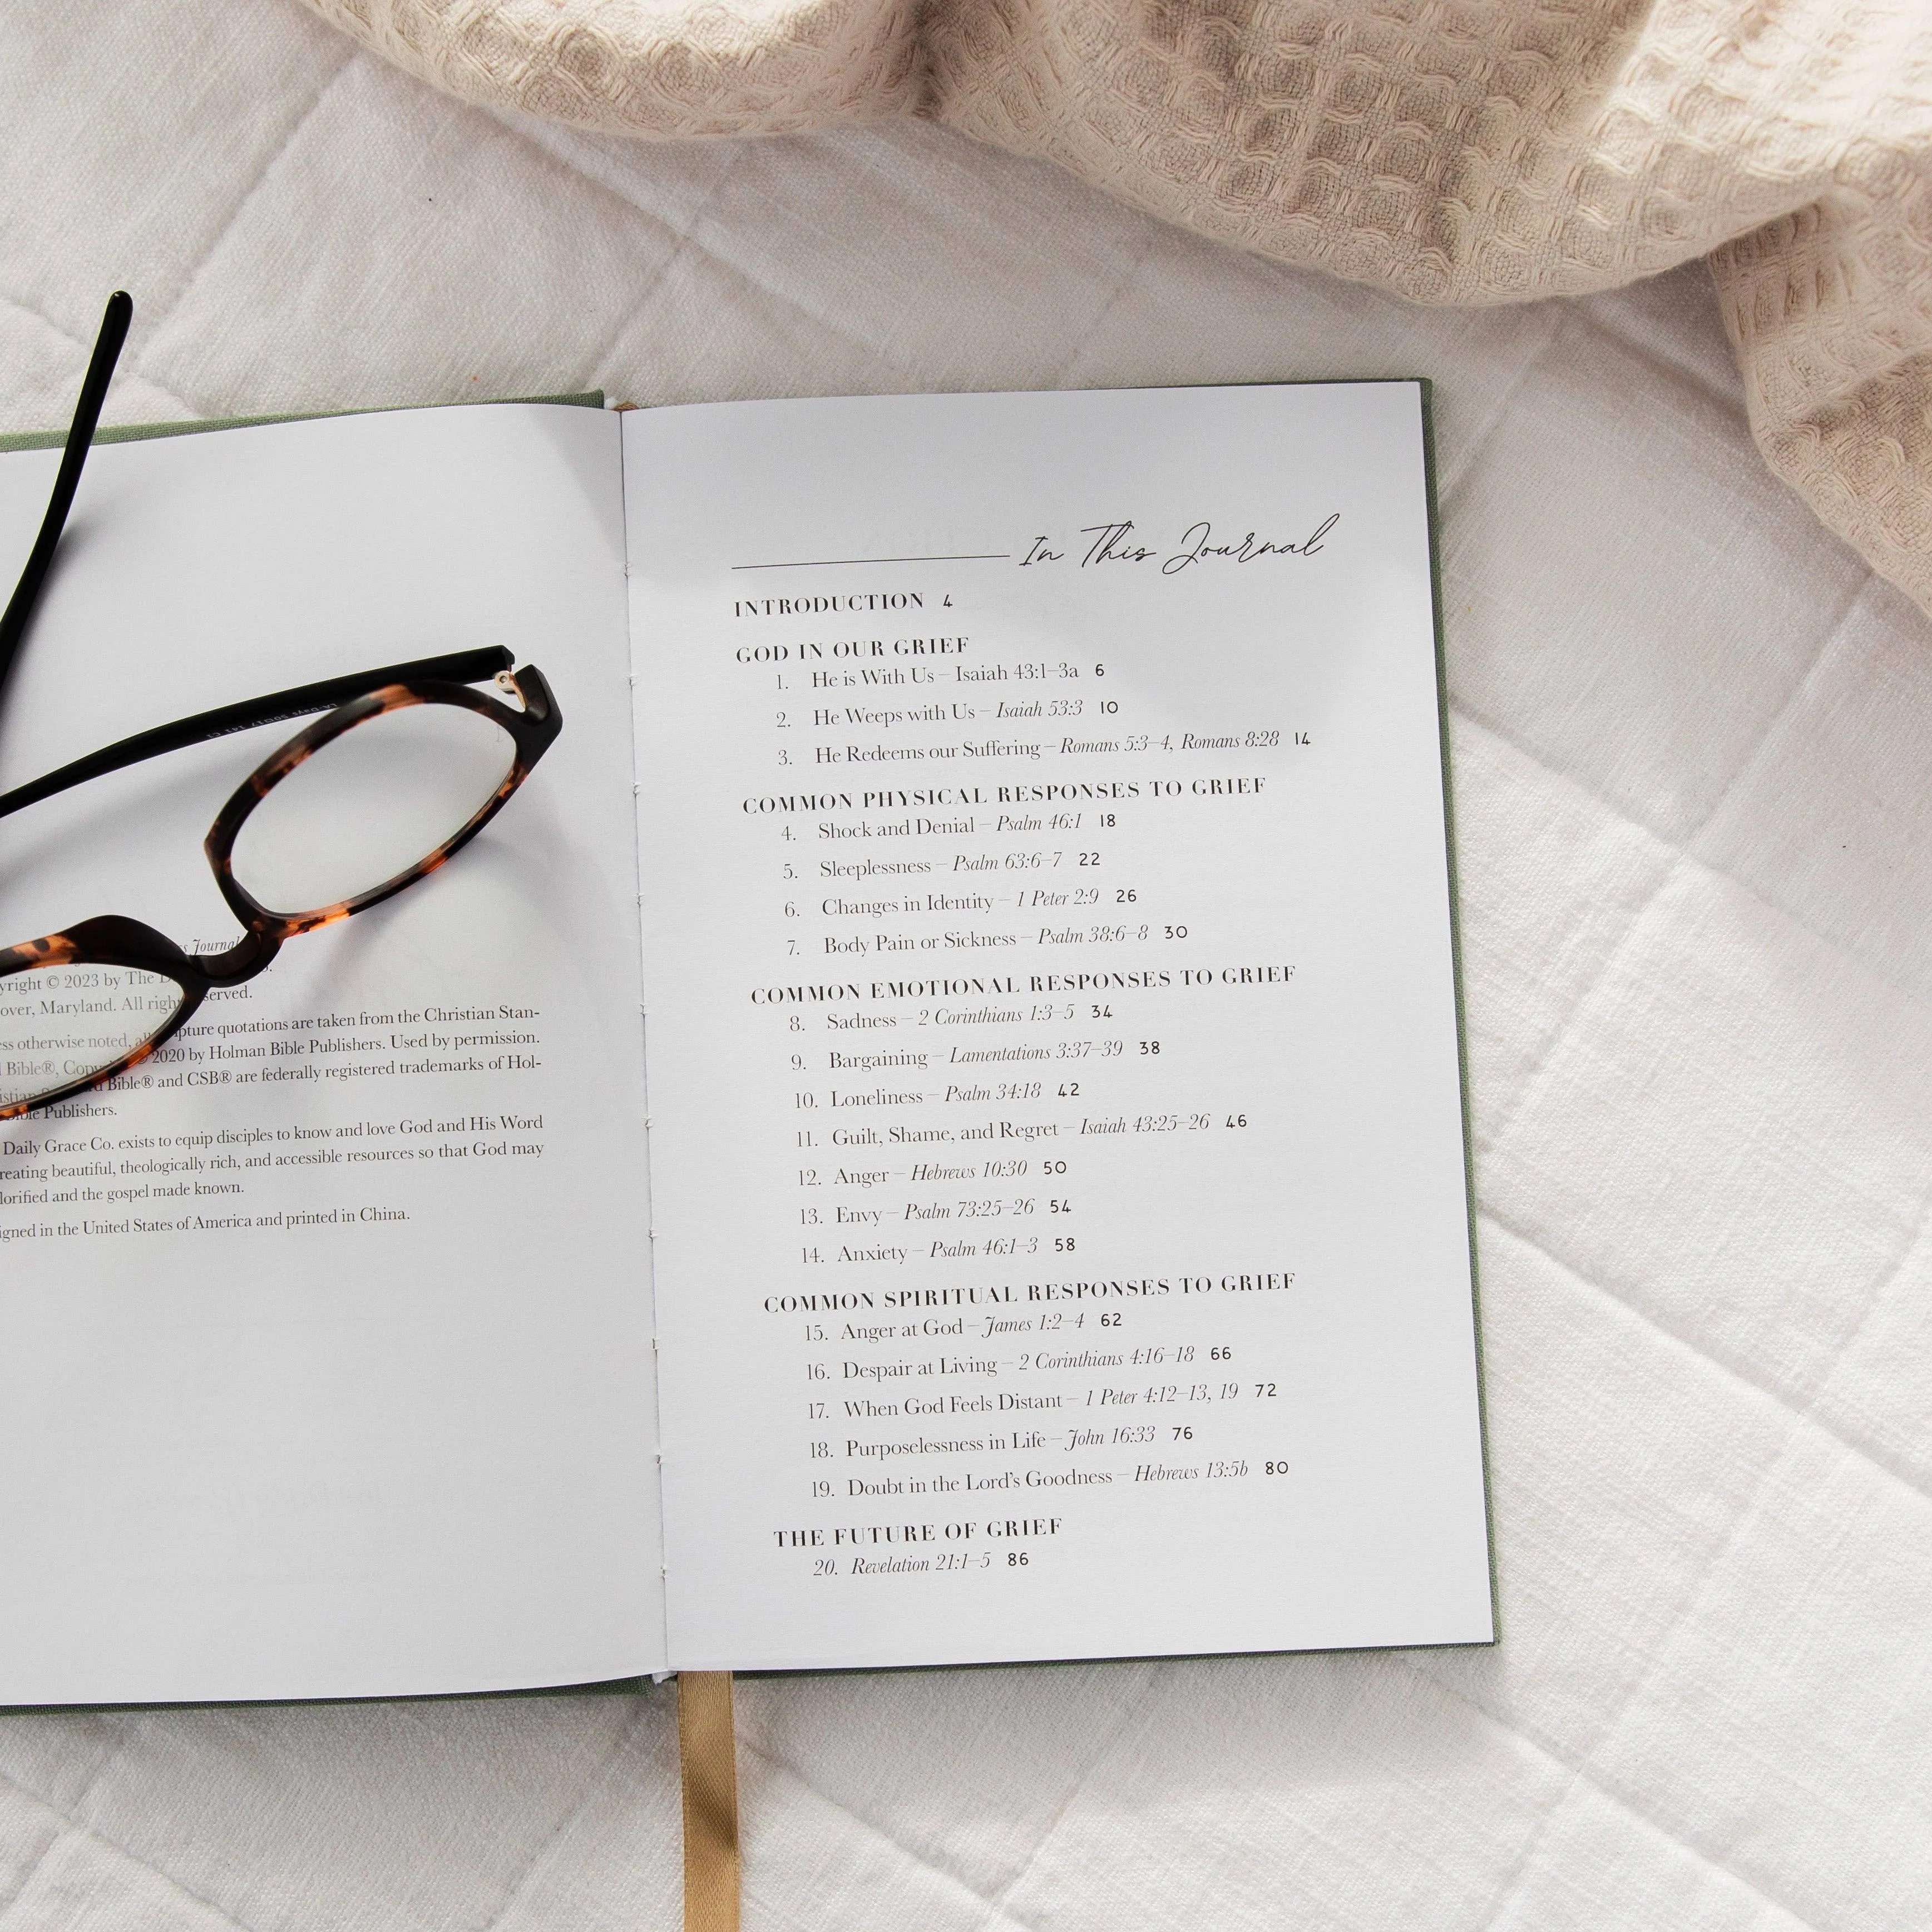 s Journal
yright © 2023 by The D
over, Maryland. All rights served.
ess otherwise noted, all pture quotations are taken from the Christian Stan-
d Bible®, Copy 2020 by Holman Bible Publishers. Used by permission.
istian d Bible® and CSB® are federally registered trademarks of Hol-
Bible Publishers.
Daily Grace Co. exists to equip disciples to know and love God and His Word
reating beautiful, theologically rich, and accessible resources so that God may
lorified and the gospel made known.
igned in the United States of America and printed in China.
In This Journal
INTRODUCTION 4
GOD IN OUR GRIEF
1. He is With Us – Isaiah 43:1–3a 6
2. He Weeps with Us – Isaiah 53:3 10
3. He Redeems our Suffering – Romans 5:3–4, Romans 8:28 14
COMMON PHYSICAL RESPONSES TO GRIEF
4. Shock and Denial – Psalm 46:1 18
5. Sleeplessness – Psalm 63:6–7 22
6. Changes in Identity – 1 Peter 2:9 26
7. Body Pain or Sickness – Psalm 38:6–8 30
COMMON EMOTIONAL RESPONSES TO GRIEF
8. Sadness – 2 Corinthians 1:3–5 34
9. Bargaining – Lamentations 3:37–39 38
10. Loneliness – Psalm 34:18 42
11. Guilt, Shame, and Regret – Isaiah 43:25–26 46
12. Anger – Hebrews 10:30 50
13. Envy – Psalm 73:25–26 54
14. Anxiety – Psalm 46:1–3 58
COMMON SPIRITUAL RESPONSES TO GRIEF
15. Anger at God – James 1:2–4 62
16. Despair at Living – 2 Corinthians 4:16–18 66
17. When God Feels Distant – 1 Peter 4:12–13, 19 72
18. Purposelessness in Life – John 16:33 76
19. Doubt in the Lord's Goodness – Hebrews 13:5b 80
THE FUTURE OF GRIEF
20. Revelation 21:1–5 86